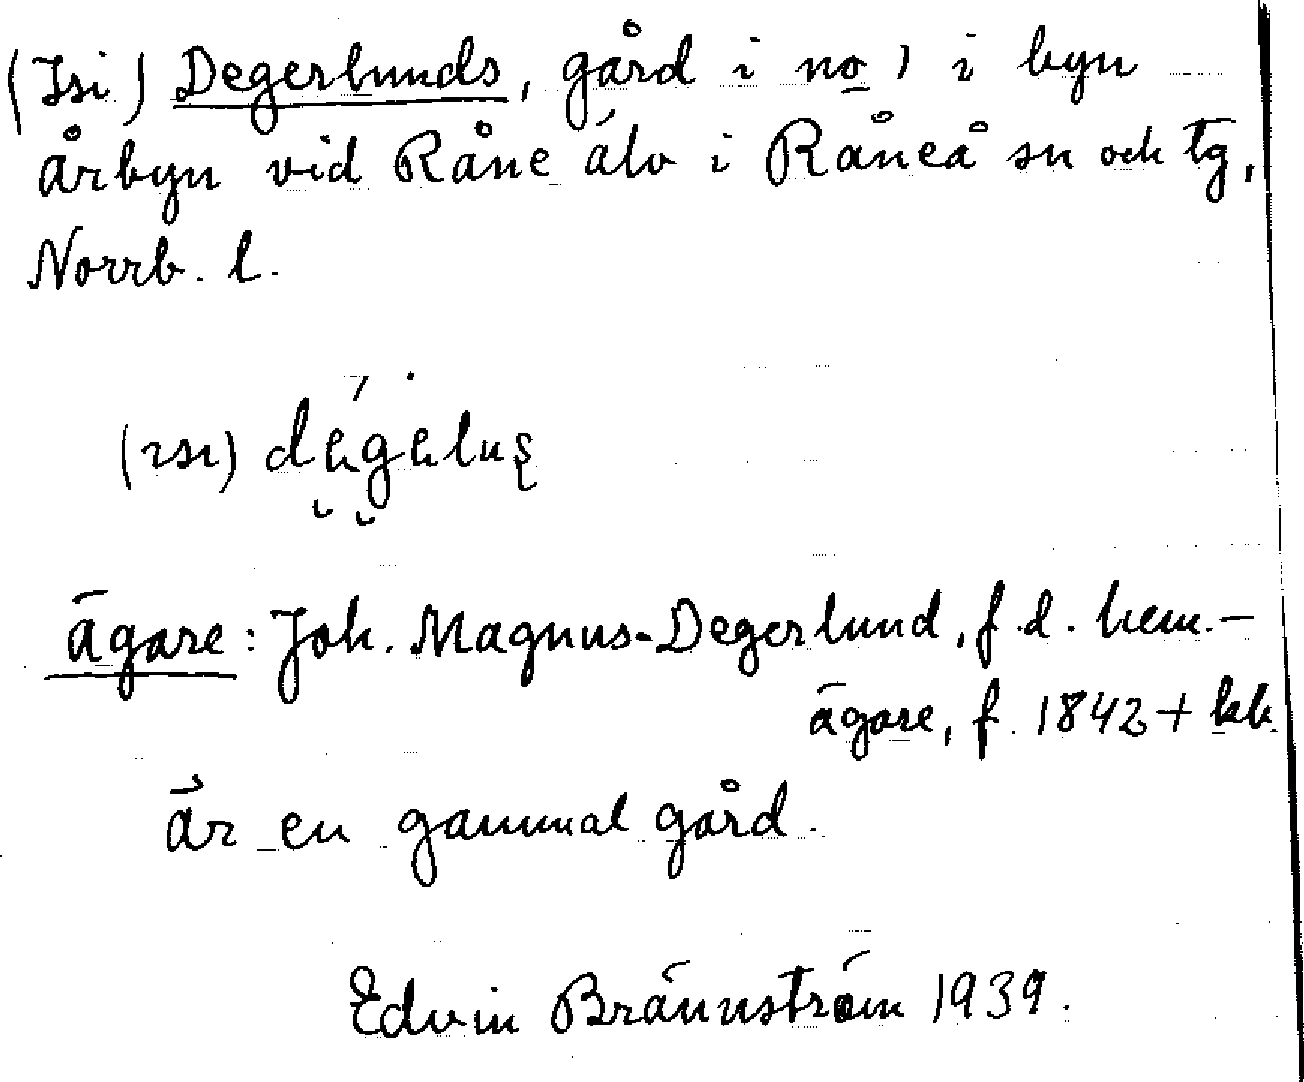 (Isi) Degerlunds, gård i no 1 i byn
Årbyn vid Råne älv i Råneå sn och tg,
Norrb. l.
(ısı) dégelus
ägare: Joh. Magnus-Degerlund, f.d. hem.-
ägare, f. 1842 +
är en gammal gård.
Edvin Brännström 1939.